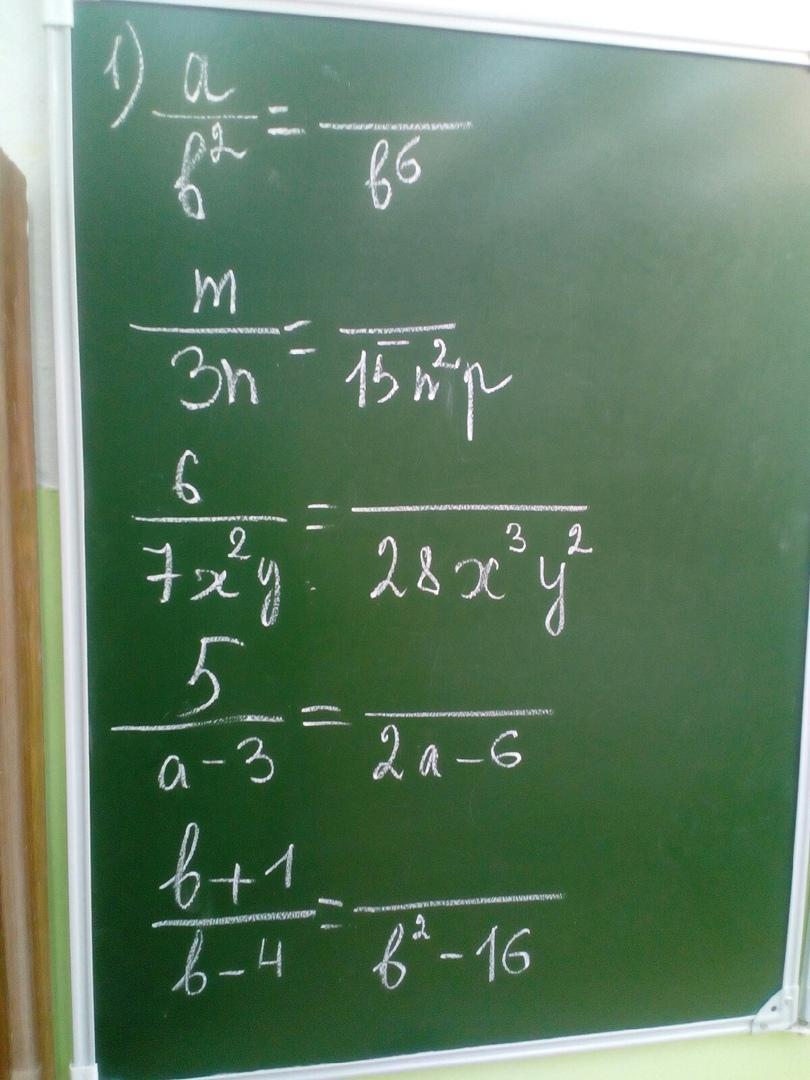 1) a/b² = /b⁶
m/3n = /15n²p
6/7x²y = /28x³y²
5/a-3 = /2a-6
b+1/b-4 = /b²-16